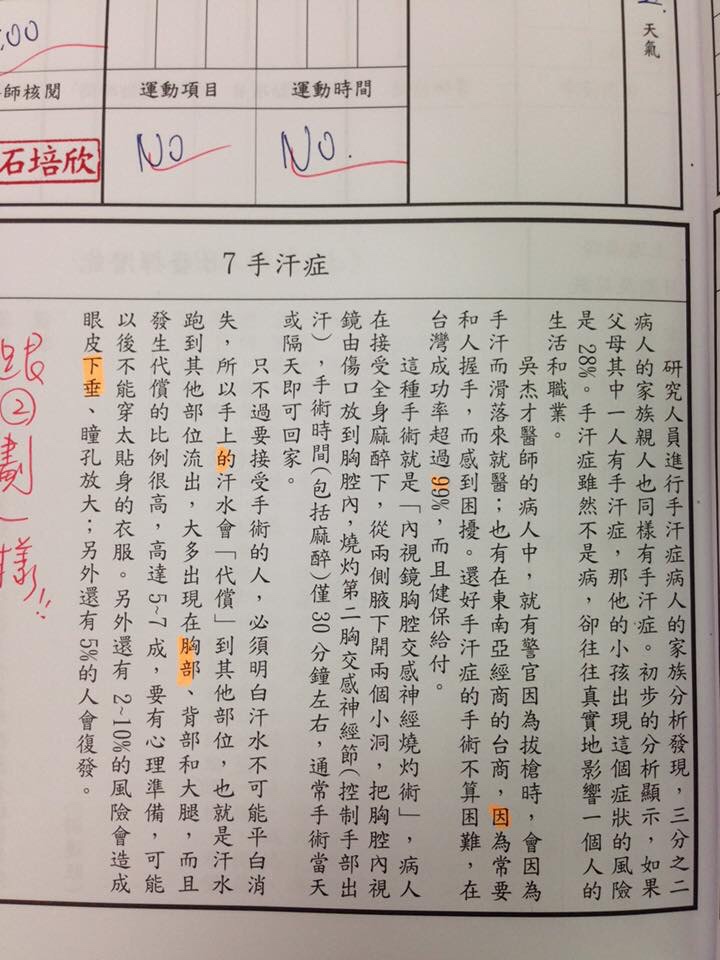 天氣
運動時間
運動項目
師核閱
NO.
NO
石培欣
00
7 手汗症
研究人員進行手汗症病人的家族分析發現，三分之二
病人的家族親人也同樣有手汗症。初步的分析顯示，如果
父母其中一人有手汗症，那他的小孩出現這個症狀的風險
是 28%。手汗症雖然不是病，卻往往真實地影響一個人的
生活和職業。
吳杰才醫師的病人中，就有警官因為拔槍時，會因為
手汗而滑落來就醫；也有在東南亞經商的台商，因為常要
和人握手，而感到困擾。還好手汗症的手術不算困難，在
台灣成功率超過 99%，而且健保給付。
這種手術就是「內視鏡胸腔交感神經燒灼術」，病人
在接受全身麻醉下，從兩側腋下開兩個小洞，把胸腔內視
鏡由傷口放到胸腔內，燒灼第二胸交感神經節(控制手部出
汗)，手術時間(包括麻醉)僅 30 分鐘左右，通常手術當天
或隔天即可回家。
只不過要接受手術的人，必須明白汗水不可能平白消
失，所以手上的汗水會「代償」到其他部位，也就是汗水
跑到其他部位流出，大多出現在胸部、背部和大腿，而且
發生代償的比例很高，高達 5~7 成，要有心理準備，可能
以後不能穿太貼身的衣服。另外還有 2~10%的風險會造成
眼皮下垂、瞳孔放大；另外還有 5%的人會復發。
跟②劃一樣!!